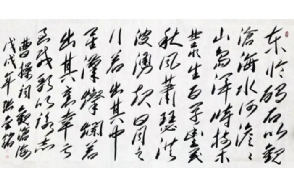 东临碣石以观
沧海水何澹澹
山岛竦峙树木
丛生百草丰茂
秋风萧瑟洪
波涌起日月之
行若出其中
星汉灿烂若
出其里幸甚
至哉歌以咏志
曹操词观沧海
戊戌年